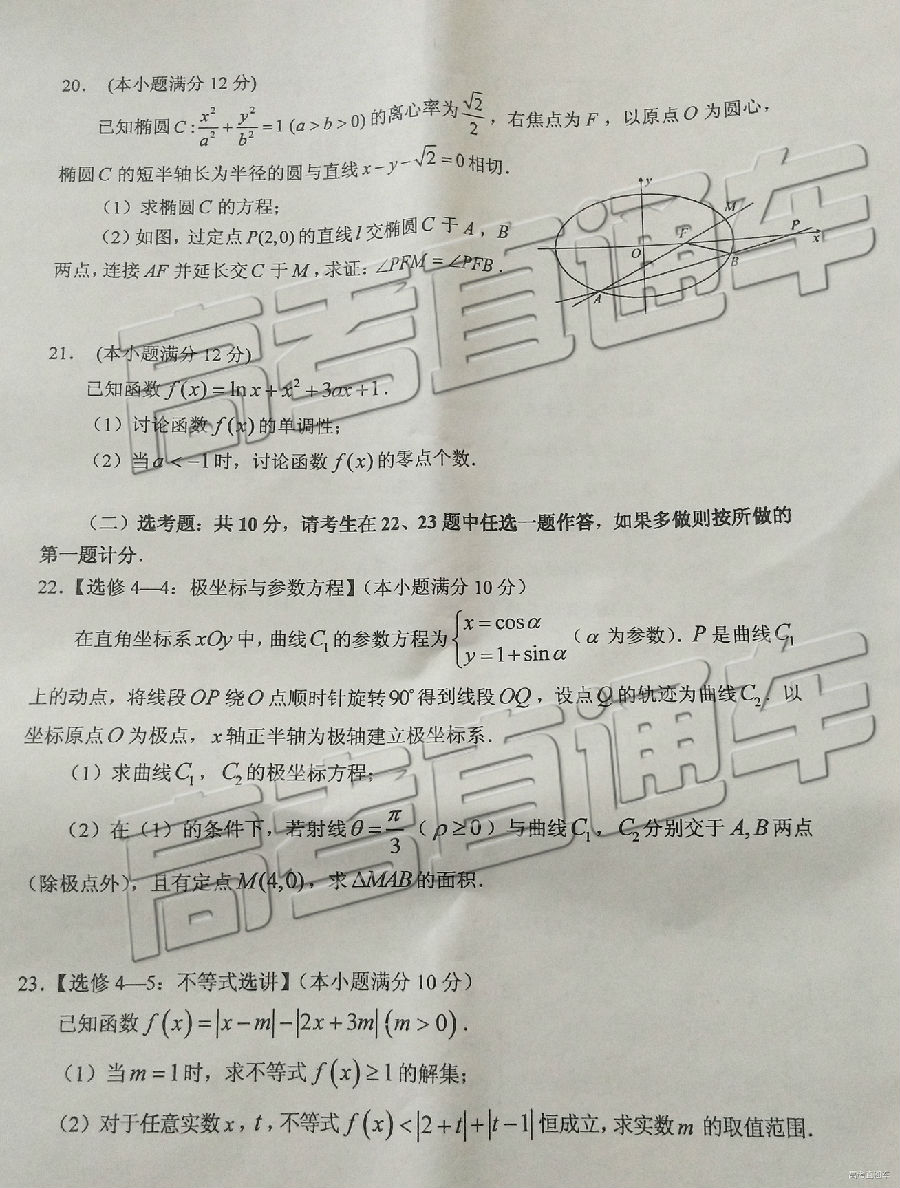 20. (本小题满分 12 分)
已知椭圆 C : x²/a² + y²/b² = 1 (a > b > 0) 的离心率为 √2/2 ，右焦点为 F ，以原点 O 为圆心，
椭圆 C 的短半轴长为半径的圆与直线 x − y − √2 = 0 相切.
（1）求椭圆 C 的方程;
（2）如图, 过定点 P(2,0) 的直线 l 交椭圆 C 于 A ，B
两点, 连接 AF 并延长交 C 于 M , 求证: ∠PFM = ∠PFB .
y
M
F
P
x
O
B
A
21. (本小题满分 12 分)
已知函数 f(x) = ln x + x² + 3ax + 1.
（1）讨论函数 f(x) 的单调性;
（2）当 a < −1 时，讨论函数 f(x) 的零点个数.
（二）选考题：共 10 分，请考生在 22、23 题中任选一题作答，如果多做则按所做的
第一题计分.
22.【选修 4—4：极坐标与参数方程】（本小题满分 10 分）
在直角坐标系 xOy 中, 曲线 C₁ 的参数方程为 { x = cos α
y = 1 + sin α （ α 为参数）. P 是曲线 C₁
上的动点，将线段 OP 绕 O 点顺时针旋转 90° 得到线段 OQ ，设点 Q 的轨迹为曲线 C₂. 以
坐标原点 O 为极点， x 轴正半轴为极轴建立极坐标系.
（1）求曲线 C₁， C₂ 的极坐标方程;
（2）在（1）的条件下，若射线 θ = π/3（ ρ ≥ 0 ）与曲线 C₁， C₂ 分别交于 A, B 两点
（除极点外），且有定点 M(4,0)，求 △MAB 的面积.
23.【选修 4—5：不等式选讲】（本小题满分 10 分）
已知函数 f(x) = |x − m| − |2x + 3m| (m > 0) .
（1）当 m = 1 时，求不等式 f(x) ≥ 1 的解集;
（2）对于任意实数 x，t，不等式 f(x) < |2 + t| + |t − 1| 恒成立, 求实数 m 的取值范围.
高考直通车
高考直通车
高考直通车